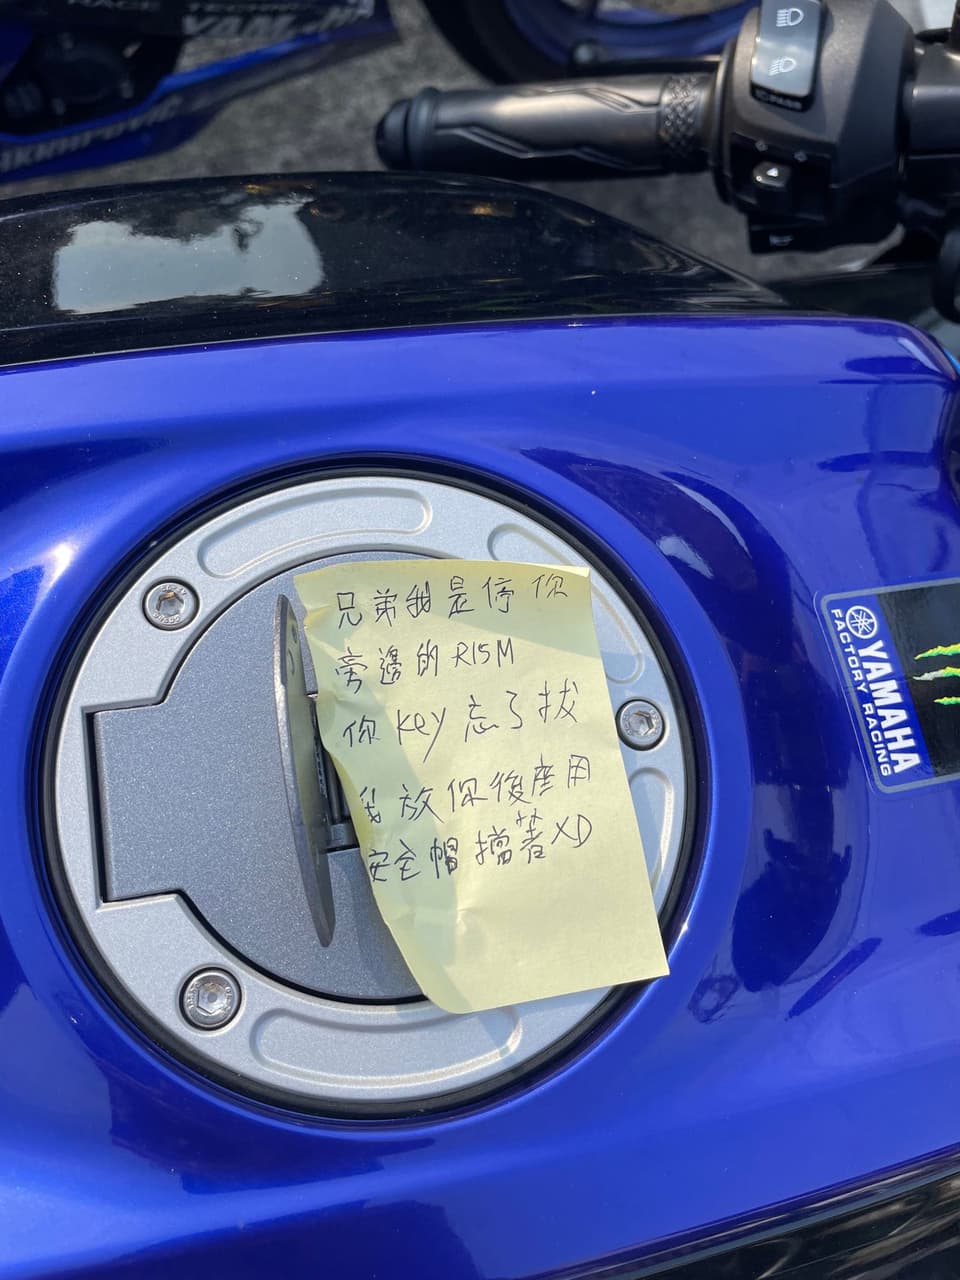 RACE
TECHN
YAMAHA
AKRAPOVIČ
PASS
兄弟我是停你
旁邊的 R15M
你 key 忘了拔
我放你後座用
安全帽擋著XD
YAMAHA
FACTORY RACING